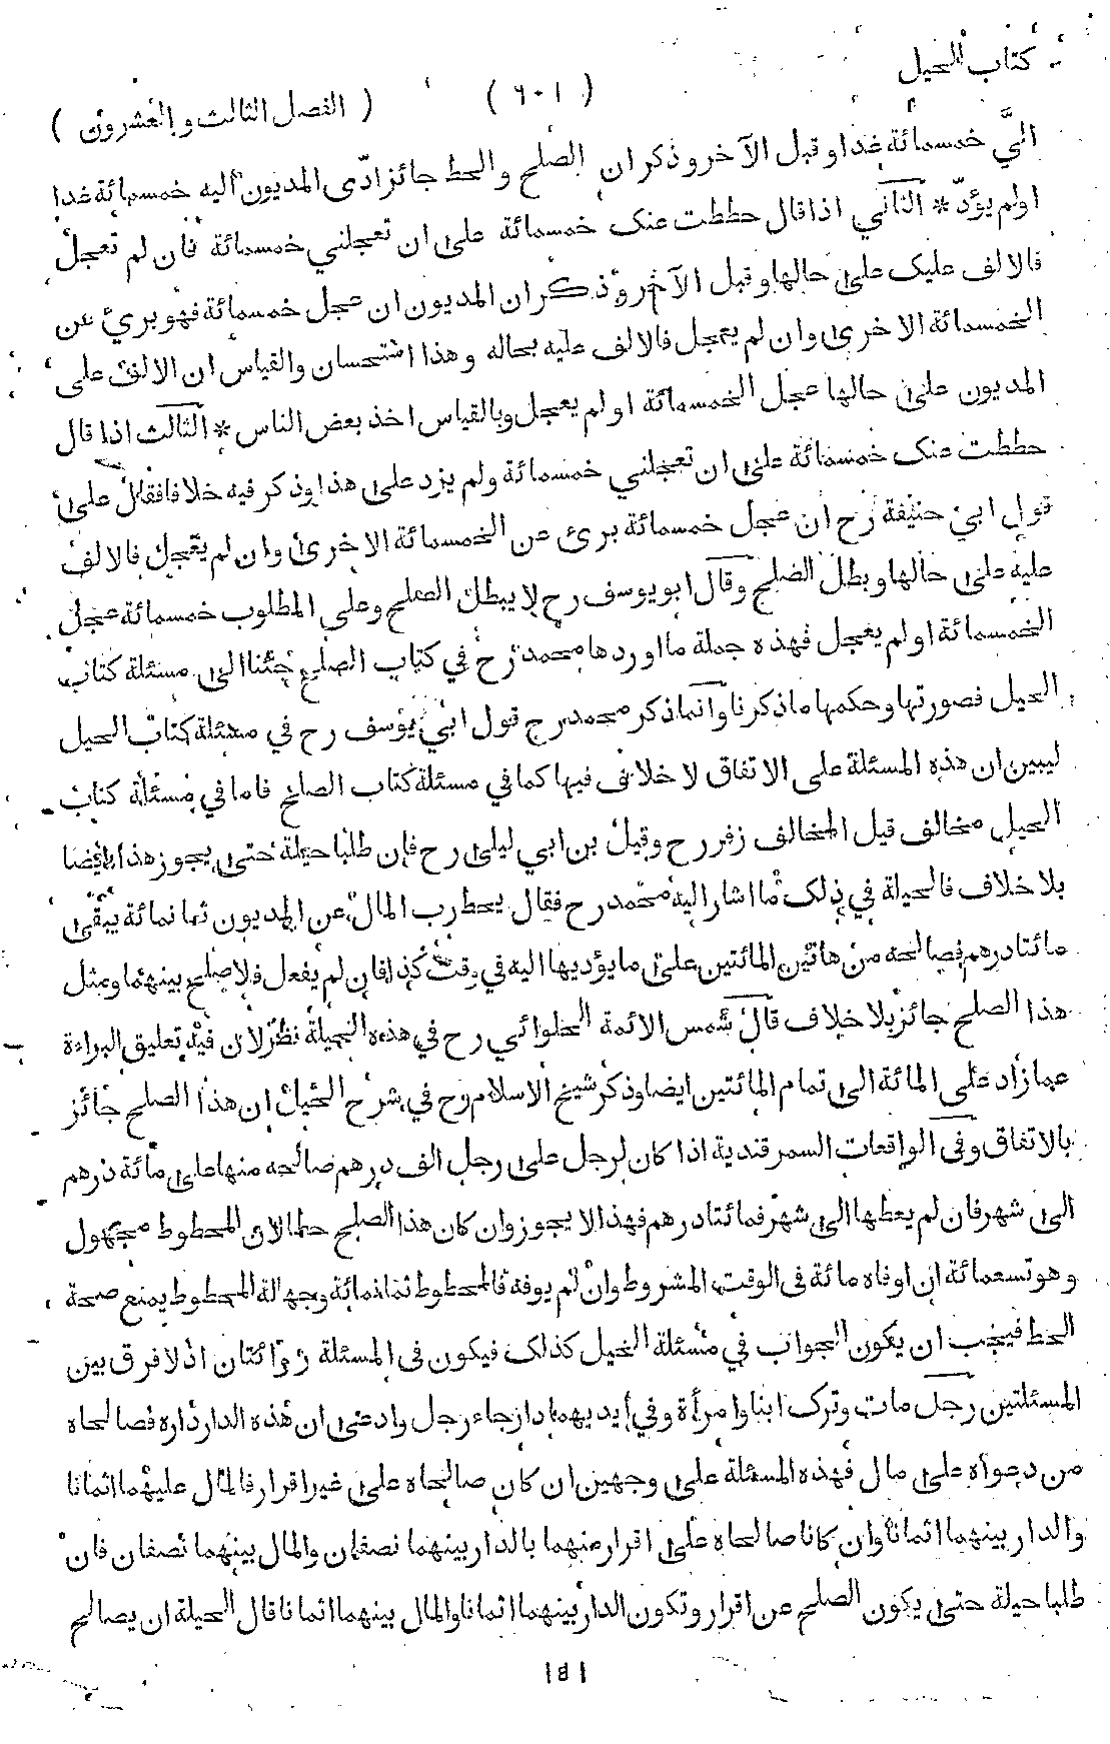 كتاب الحيل
( ٦٠١ )
( الفصل الثالث والعشرون )
اليَّ خمسمائة غدا وقبل الآخر وذكر ان الصلح والحط جائز ادّى المديون اليه خمسمائة غدا
اولم يؤدّ * الثاني اذا قال حططت عنك خمسمائة على ان تعجلني خمسمائة فان لم تعجل
فالالف عليك على حالها وقبل الآخر وذكر ان المديون ان عجل خمسمائة فهو برئ عن
الخمسمائة الاخرى وان لم يعجل فالالف عليه بحاله وهذا استحسان والقياس ان الالف على
المديون على حالها عجل الخمسمائة اولم يعجل وبالقياس اخذ بعض الناس * الثالث اذا قال
حططت عنك خمسمائة على ان تعجلني خمسمائة ولم يزد على هذا وذكر فيه خلافا فقال على
قول ابي حنيفة رح ان عجل خمسمائة برئ عن الخمسمائة الاخرى وان لم يعجل فالالف
عليه على حالها وبطل الصلح وقال ابو يوسف رح لا يبطل الصلح وعلى المطلوب خمسمائة عجل
الخمسمائة اولم يعجل فهذه جملة ما اوردها محمد رح في كتاب الصلح جئنا الى مسئلة كتاب
الحيل فصورتها وحكمها ما ذكرنا وانما ذكر محمد رح قول ابي يوسف رح في مسئلة كتاب الحيل
ليبين ان هذه المسئلة على الاتفاق لا خلاف فيها كما في مسئلة كتاب الصلح فاما في مسئلة كتاب
الحيل مخالف قيل المخالف زفر رح وقيل بن ابي ليلى رح فان طلبا حيلة حتى يجوز هذا ايضا
بلا خلاف فالحيلة في ذلك ما اشار اليه محمد رح فقال يحط رب المال عن المديون ثمانمائة يبقى
مائتا درهم فصالحه من هاتين المائتين على ما يؤديها اليه في وقت كذا فان لم يفعل فلا صلح بينهما ومثل
هذا الصلح جائز بلا خلاف قال شمس الائمة الحلوائي رح في هذه الحيلة نظر لان فيه تعليق البراءة
عما زاد على المائة الى تمام المائتين ايضا وذكر شيخ الاسلام رح في شرح الحيل ان هذا الصلح جائز
بالاتفاق وفى الواقعات السمرقندية اذا كان لرجل على رجل الف درهم صالحه منها على مائة درهم
الى شهر فان لم يعطها الى شهر فمائتا درهم فهذا لا يجوز وان كان هذا الصلح حطا لان المحطوط مجهول
وهو تسعمائة ان اوفاه مائة فى الوقت المشروط وان لم يوفه فالمحطوط ثمانمائة وجهالة المحطوط يمنع صحة
الحط فيجب ان يكون الجواب في مسئلة الحيل كذلك فيكون فى المسئلة روائتان اذ لا فرق بين
المسئلتين رجل مات وترك ابنا وامرأة وفي أيديهما دار جاء رجل وادعى ان هذه الدار داره فصالحاه
من دعواه على مال فهذه المسئلة على وجهين ان كان صالحاه على غير اقرار فالمال عليهما اثمانا
والدار بينهما اثمانا وان كانا صالحاه على اقرار منهما بالدار بينهما نصفان والمال بينهما نصفان فان
طلبا حيلة حتى يكون الصلح عن اقرار وتكون الدار بينهما اثمانا والمال بينهما اثمانا قال الحيلة ان يصالح